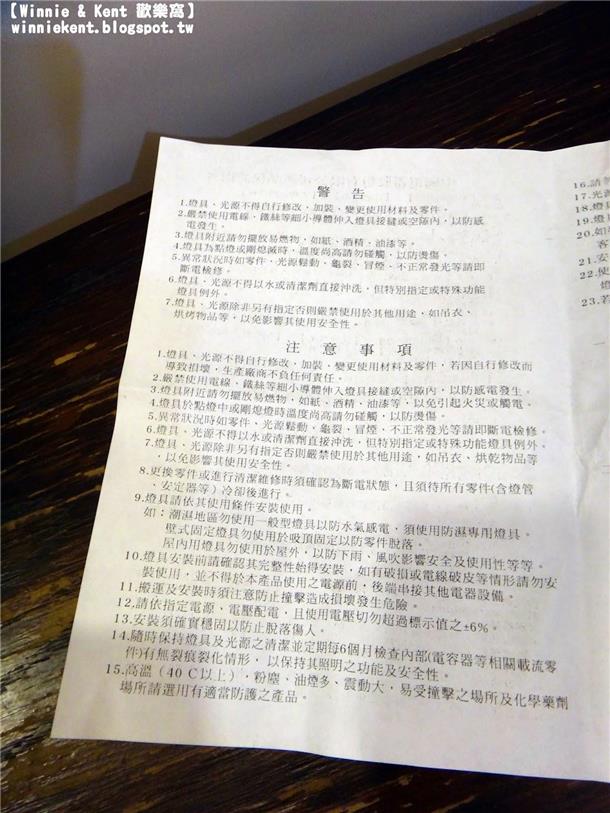 【Winnie & Kent 歡樂窩】
winniekent.blogspot.tw
警 告
1.燈具、光源不得自行修改，加裝、變更使用材料及零件。
2.嚴禁使用電線、鐵絲等細小導體伸入燈具接縫或空隙內，以防感
電發生。
3.燈具附近請勿擺放易燃物，如紙、酒精、油漆等。
4.燈具為點燈或剛熄滅時，溫度尚高請勿碰觸，以防燙傷。
5.異常狀況時如零件、光源鬆動、龜裂、冒煙、不正常發光等請即
斷電檢修。
6.燈具、光源不得以水或清潔劑直接沖洗，但特別指定或特殊功能
燈具例外。
7.燈具、光源除非另有指定否則嚴禁使用於其他用途，如吊衣、
烘烤物品等，以免影響其使用安全性。
注 意 事 項
1.燈具、光源不得自行修改，加裝、變更使用材料及零件，若因自行修改而
導致損壞，生產廠商不負任何責任。
2.嚴禁使用電線、鐵絲等細小導體伸入燈具接縫或空隙內，以防感電發生。
3.燈具附近請勿擺放易燃物，如紙、酒精、油漆等，以免引起火災或觸電。
4.燈具於點燈中或剛熄燈時溫度尚高請勿碰觸，以防燙傷。
5.異常狀況時如零件、光源鬆動、龜裂、冒煙、不正常發光等請即斷電檢修。
6.燈具、光源不得以水或清潔劑直接沖洗，但特別指定或特殊功能燈具例外。
7.燈具、光源除非另有指定否則嚴禁使用於其他用途，如吊衣、烘乾物品等
，以免影響其使用安全性。
8.更換零件或進行清潔維修時須確認為斷電狀態，且須待所有零件(含燈管
、安定器等)冷卻後進行。
9.燈具請依其使用條件安裝使用。
如：潮濕地區勿使用一般型燈具以防水氣感電，須使用防濕專用燈具。
壁式固定燈具勿使用於吸頂固定以防零件脫落。
屋內用燈具勿使用於屋外，以防下雨、風吹影響安全及使用性等等。
10.燈具安裝前請確認其完整性始得安裝，如有破損或電線破皮等情形請勿安
裝使用，並不得於本產品使用之電源前，後端串接其他電器設備。
11.搬運及安裝時須注意防止撞擊造成損壞發生危險。
12.請依指定電源、電壓配電，且使用電壓切勿超過標示值之±6%。
13.安裝須確實穩固以防止脫落傷人。
14.隨時保持燈具及光源之清潔並定期每6個月檢查內部(電容器等相關載流零
件)有無裂痕裂化情形，以保持其照明之功能及安全性。
15.高溫（40 C以上），粉塵、油煙多、震動大，易受撞擊之場所及化學藥劑
場所請選用有適當防護之產品。
16.請
17.光源
18.燈具
19.燈
20.如
客
21.安
22.使
23.若